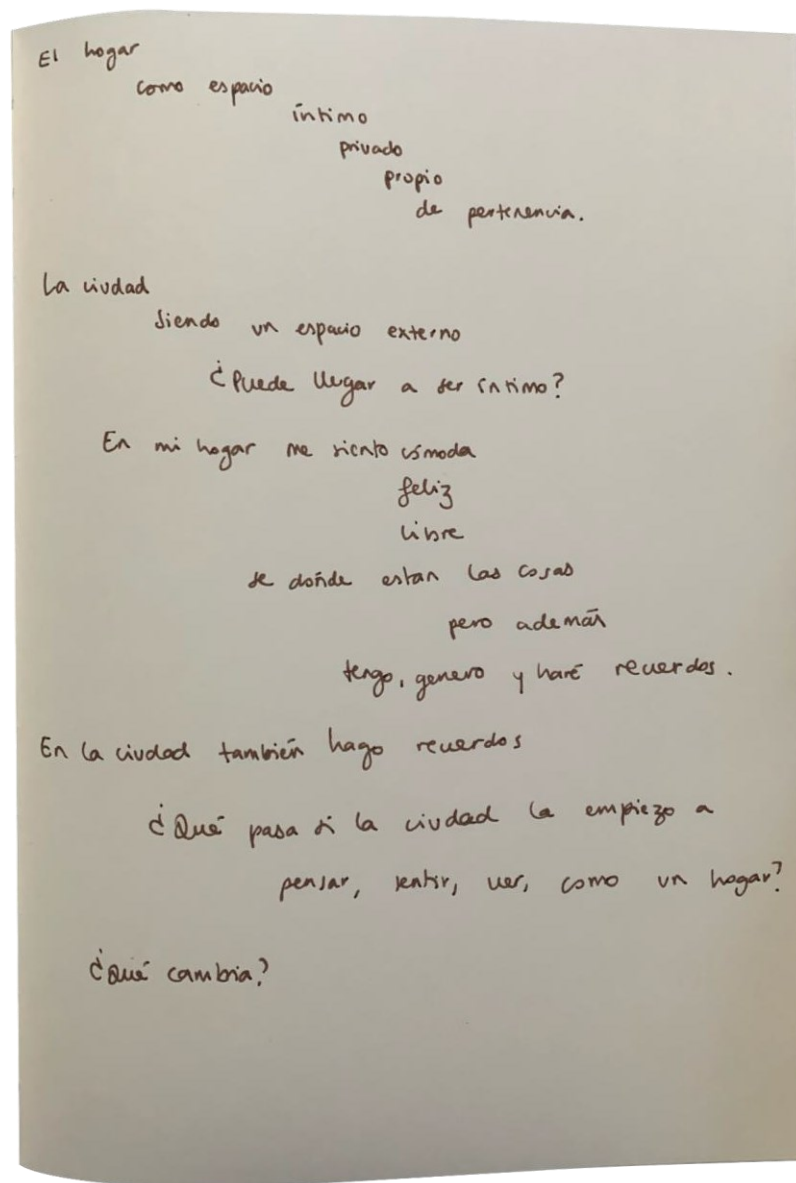 El hogar
como espacio
íntimo
privado
propio
de pertenencia.
La ciudad
siendo un espacio externo
¿Puede llegar a ser íntimo?
En mi hogar me siento cómoda
feliz
libre
se dónde estan las cosas
pero además
tengo, genero y haré recuerdos.
En la ciudad también hago recuerdos
¿Qué pasa si la ciudad la empiezo a
pensar, sentir, ver, como un hogar?
¿Qué cambia?